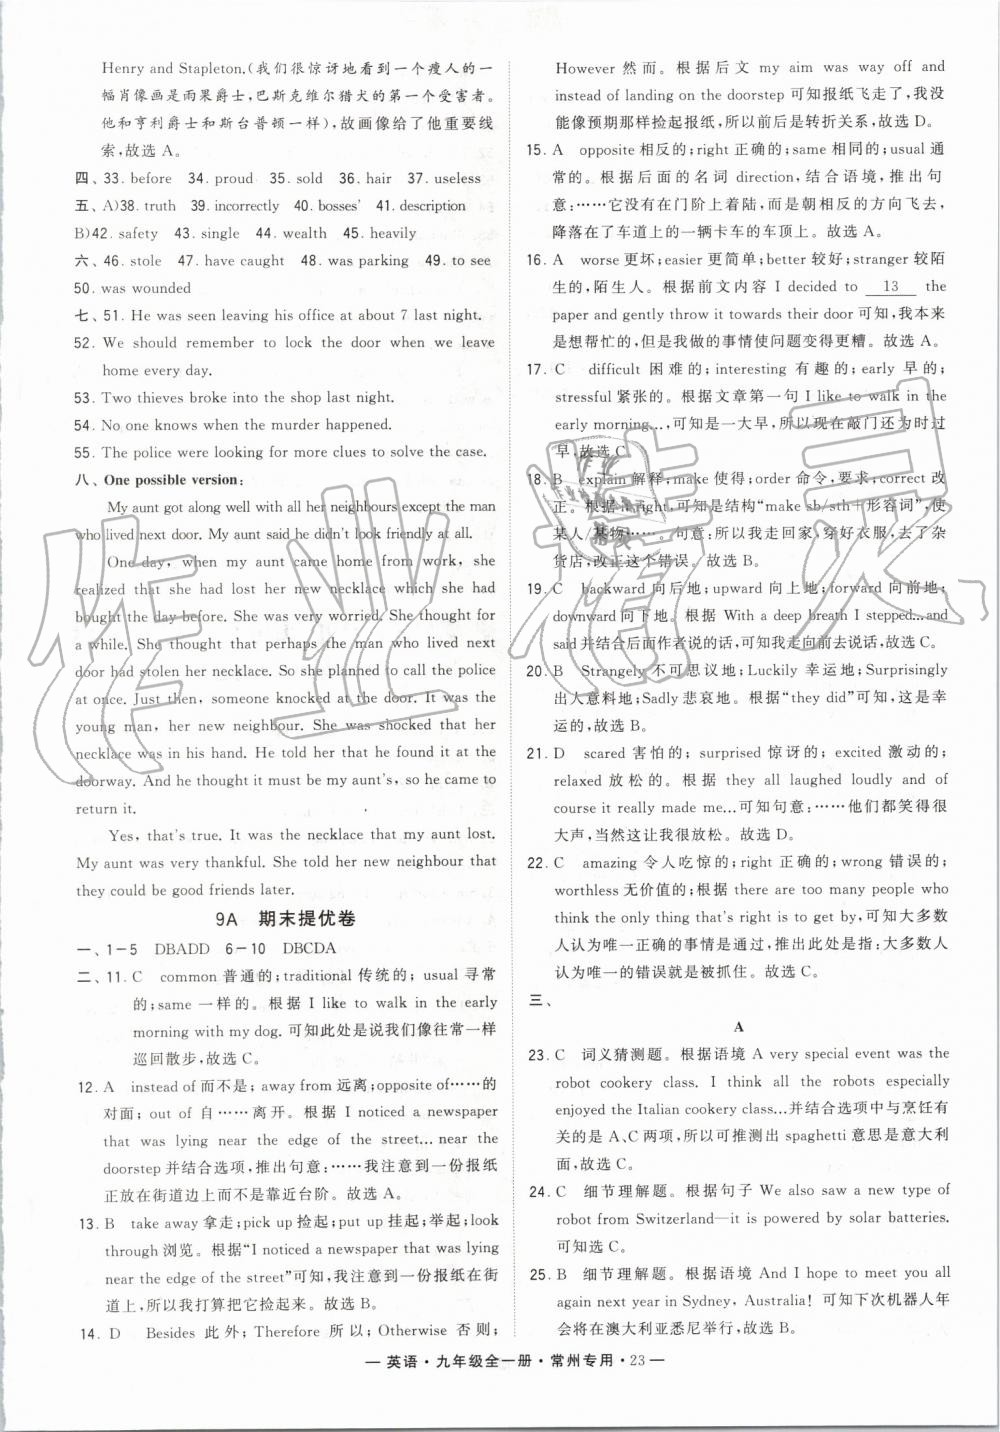 Henry and Stapleton.(我们很惊讶地看到一个瘦人的一
幅肖像画是雨果爵士,巴斯克维尔猎犬的第一个受害者。
他和亨利爵士和斯台普顿一样),故画像给了他重要线
索,故选 A。
四、33. before 34. proud 35. sold 36. hair 37. useless
五、A)38. truth 39. incorrectly 40. bosses' 41. description
B)42. safety 43. single 44. wealth 45. heavily
六、46. stole 47. have caught 48. was parking 49. to see
50. was wounded
七、51. He was seen leaving his office at about 7 last night.
52. We should remember to lock the door when we leave
home every day.
53. Two thieves broke into the shop last night.
54. No one knows when the murder happened.
55. The police were looking for more clues to solve the case.
八、One possible version:
My aunt got along well with all her neighbours except the man
who lived next door. My aunt said he didn't look friendly at all.
One day, when my aunt came home from work, she
realized that she had lost her new necklace which she had
bought the day before. She was very worried. She thought for
a while. She thought that perhaps the man who lived next
door had stolen her necklace. So she planned to call the police
at once. Just then, someone knocked at the door. It was the
young man, her new neighbour. She was shocked that her
necklace was in his hand. He told her that he found it at the
doorway. And he thought it must be my aunt's, so he came to
return it.
Yes, that's true. It was the necklace that my aunt lost.
My aunt was very thankful. She told her new neighbour that
they could be good friends later.
9A 期末提优卷
一、1-5 DBADD 6-10 DBCDA
二、11. C common 普通的;traditional 传统的;usual 寻常
的;same 一样的。根据 I like to walk in the early
morning with my dog. 可知此处是说我们像往常一样
巡回散步,故选 C。
12. A instead of 而不是;away from 远离;opposite of……的
对面;out of 自……离开。根据 I noticed a newspaper
that was lying near the edge of the street... near the
doorstep 并结合选项,推出句意:……我注意到一份报纸
正放在街道边上而不是靠近台阶。故选 A。
13. B take away 拿走;pick up 捡起;put up 挂起;举起;look
through 浏览。根据"I noticed a newspaper that was lying
near the edge of the street"可知,我注意到一份报纸在街
道上,所以我打算把它捡起来。故选 B。
14. D Besides 此外;Therefore 所以;Otherwise 否则;
However 然而。根据后文 my aim was way off and
instead of landing on the doorstep 可知报纸飞走了,我没
能像预期那样捡起报纸,所以前后是转折关系,故选 D。
15. A opposite 相反的;right 正确的;same 相同的;usual 通
常的。根据后面的名词 direction,结合语境,推出句
意:……它没有在门阶上着陆,而是朝相反的方向飞去,
降落在了车道上的一辆卡车的车顶上。故选 A。
16. A worse 更坏;easier 更简单;better 较好;stranger 较陌
生的,陌生人。根据前文内容 I decided to 13 the
paper and gently throw it towards their door 可知,我本来
是想帮忙的,但是我做的事情使问题变得更糟。故选 A。
17. C difficult 困难的;interesting 有趣的;early 早的;
stressful 紧张的。根据文章第一句 I like to walk in the
early morning...,可知是一大早,所以现在敲门还为时过
早,故选 C。
18. B explain 解释;make 使得;order 命令,要求;correct 改
正。根据 it right,可知是结构"make sb/sth+形容词",使
某人/某物……。句意:所以我走回家,穿好衣服,去了杂
货店,改正这个错误。故选 B。
19. C backward 向后地;upward 向上地;forward 向前地;
downward 向下地。根据 With a deep breath I stepped...and
said 并结合后面作者说的话,可知我走向前去说话,故选 C。
20. B Strangely 不可思议地;Luckily 幸运地;Surprisingly
出人意料地;Sadly 悲哀地。根据"they did"可知,这是幸
运的,故选 B。
21. D scared 害怕的;surprised 惊讶的;excited 激动的;
relaxed 放松的。根据 they all laughed loudly and of
course it really made me...可知句意:……他们都笑得很
大声,当然这让我很放松。故选 D。
22. C amazing 令人吃惊的;right 正确的;wrong 错误的;
worthless 无价值的;根据 there are too many people who
think the only thing that's wrong is to get by,可知大多数
人认为唯一正确的事情是通过,推出此处是对比,大多数
人认为唯一的错误就是被抓住。故选 C。
三、
A
23. C 词义猜测题。根据语境 A very special event was the
robot cookery class. I think all the robots especially
enjoyed the Italian cookery class...并结合选项中与烹饪有
关的是 A、C 两项,所以可推测出 spaghetti 意思是意大利
面,故选 C。
24. C 细节理解题。根据句子 We also saw a new type of
robot from Switzerland—it is powered by solar batteries.
可知选 C。
25. B 细节理解题。根据语境 And I hope to meet you all
again next year in Sydney, Australia! 可知下次机器人年
会将在澳大利亚悉尼举行,故选 B。
— 英语·九年级全一册·常州专用·23 —